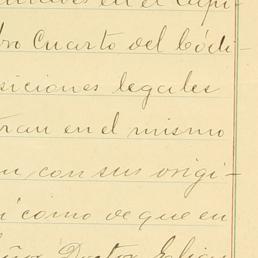 en el Capi-
bro Cuarto del Códi-
siciones legales
tran en el mismo
n con sus origi-
í como de que en
Doctor